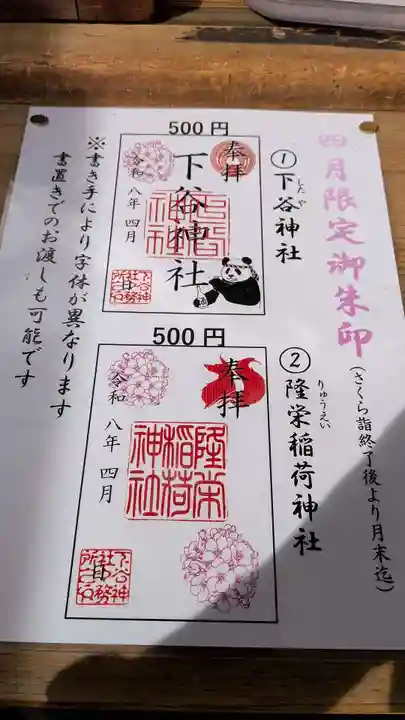 四月限定御朱印
(さくら詣終了後より月末迄)
①下谷神社
したや
500円
奉拝
下谷神社
令和八年 四月
日
②隆栄稲荷神社
りゅうえい
500円
奉拝
隆栄稲荷神社
令和八年 四月
下谷神社社務所之印
日
※書き手により字体が異なります
書置きでのお渡しも可能です